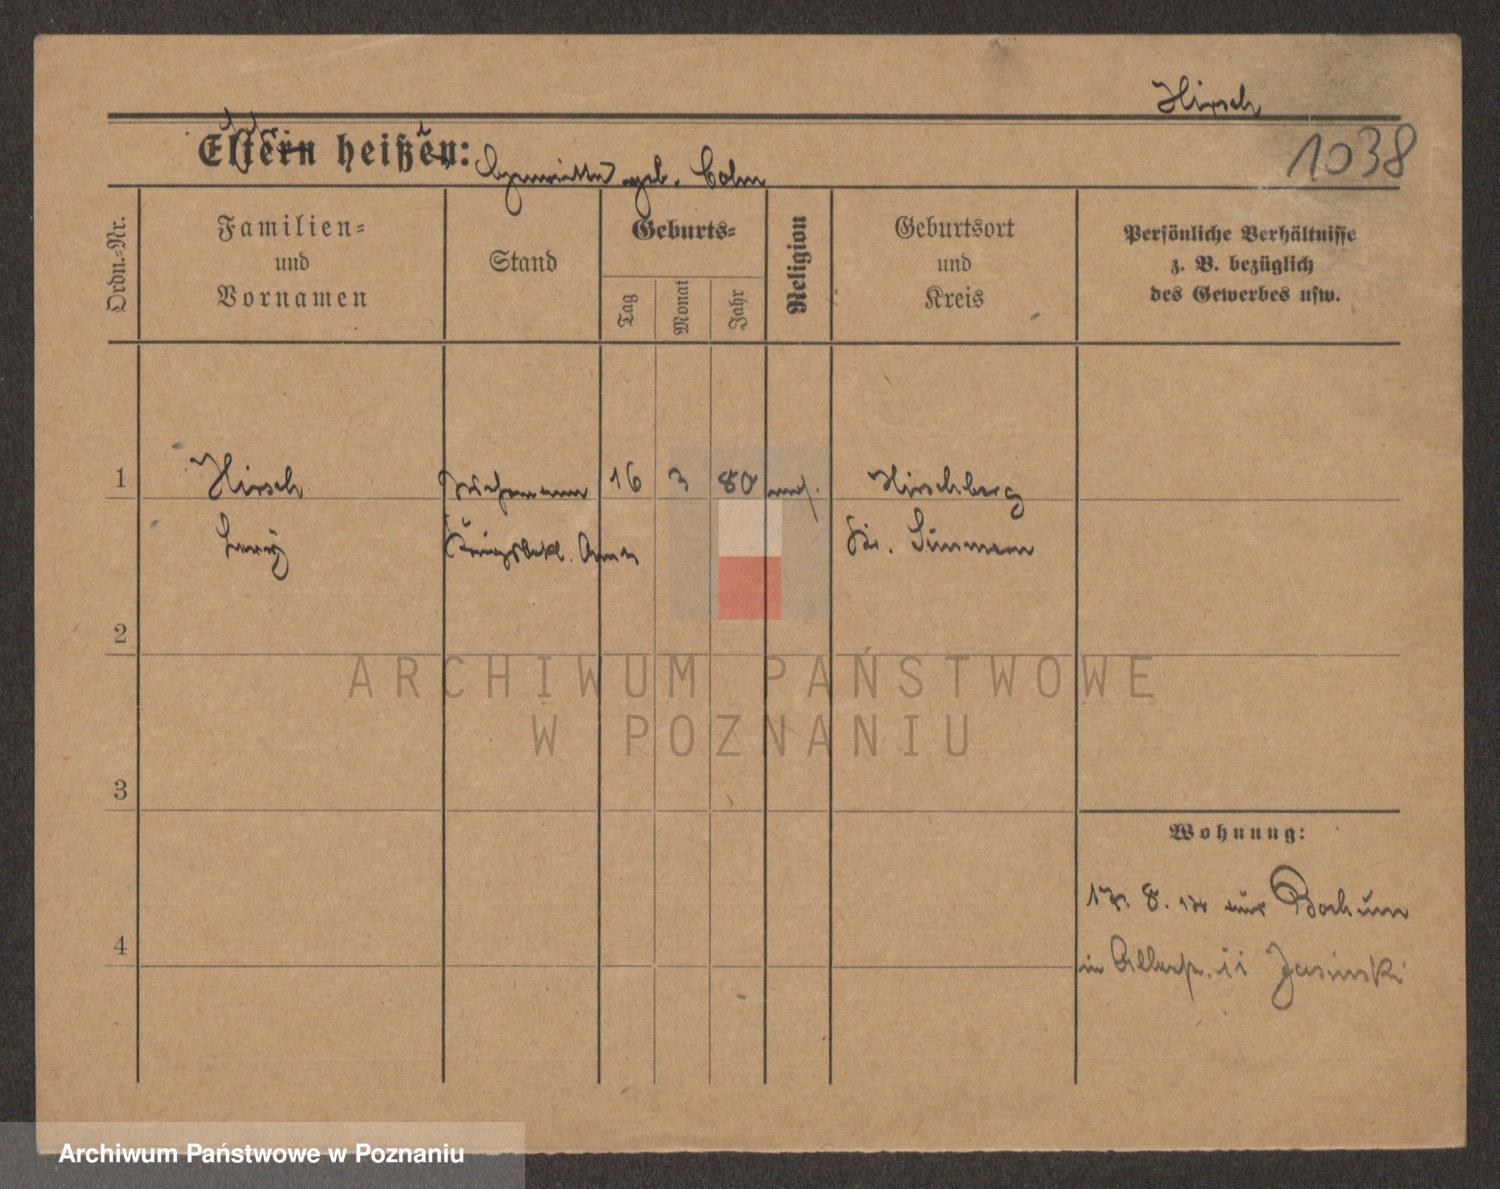 Hirsch
1038
Eltern heißen:
geb. Cohn
Ordn.-Nr.
Familien-
und
Vornamen
Stand
Geburts-
Tag
Monat
Jahr
Religion
Geburtsort
und
Kreis
Persönliche Verhältnisse
z. B. bezüglich
des Gewerbes usw.
1
Hirsch
16
3
80
mos.
Hirschberg
Levy
Kr. Simmern
2
ARCHIWUM PAŃSTWOWE
W POZNANIU
3
Wohnung:
17. 8. aus Bochum
4
in Jasinski
Archiwum Państwowe w Poznaniu